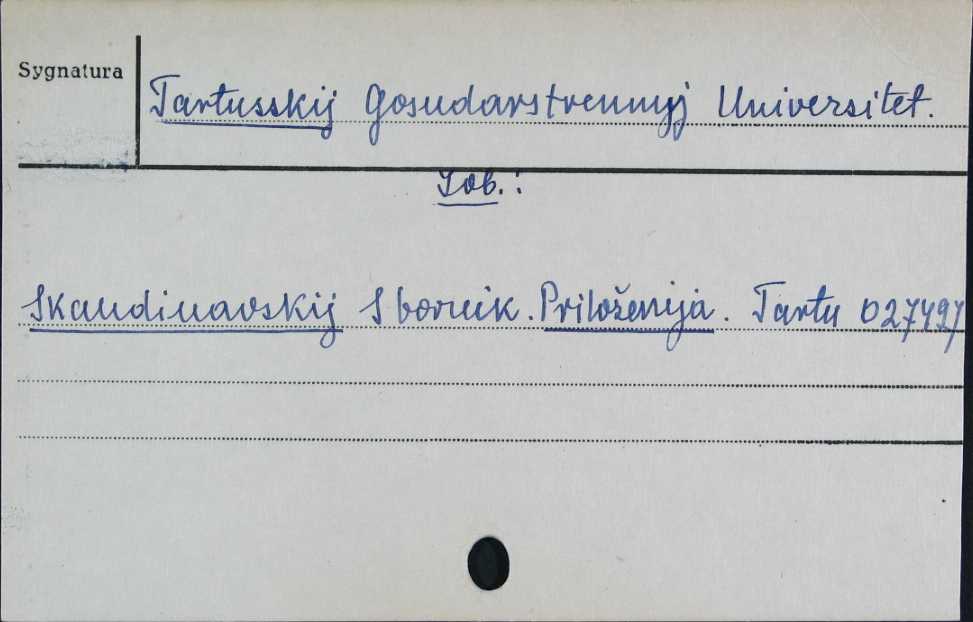 Sygnatura
Tartusskij Gosudarstvennyj Universitet.
Zob.:
Skandinavskij Sbornik. Priloženija. Tartu 027497